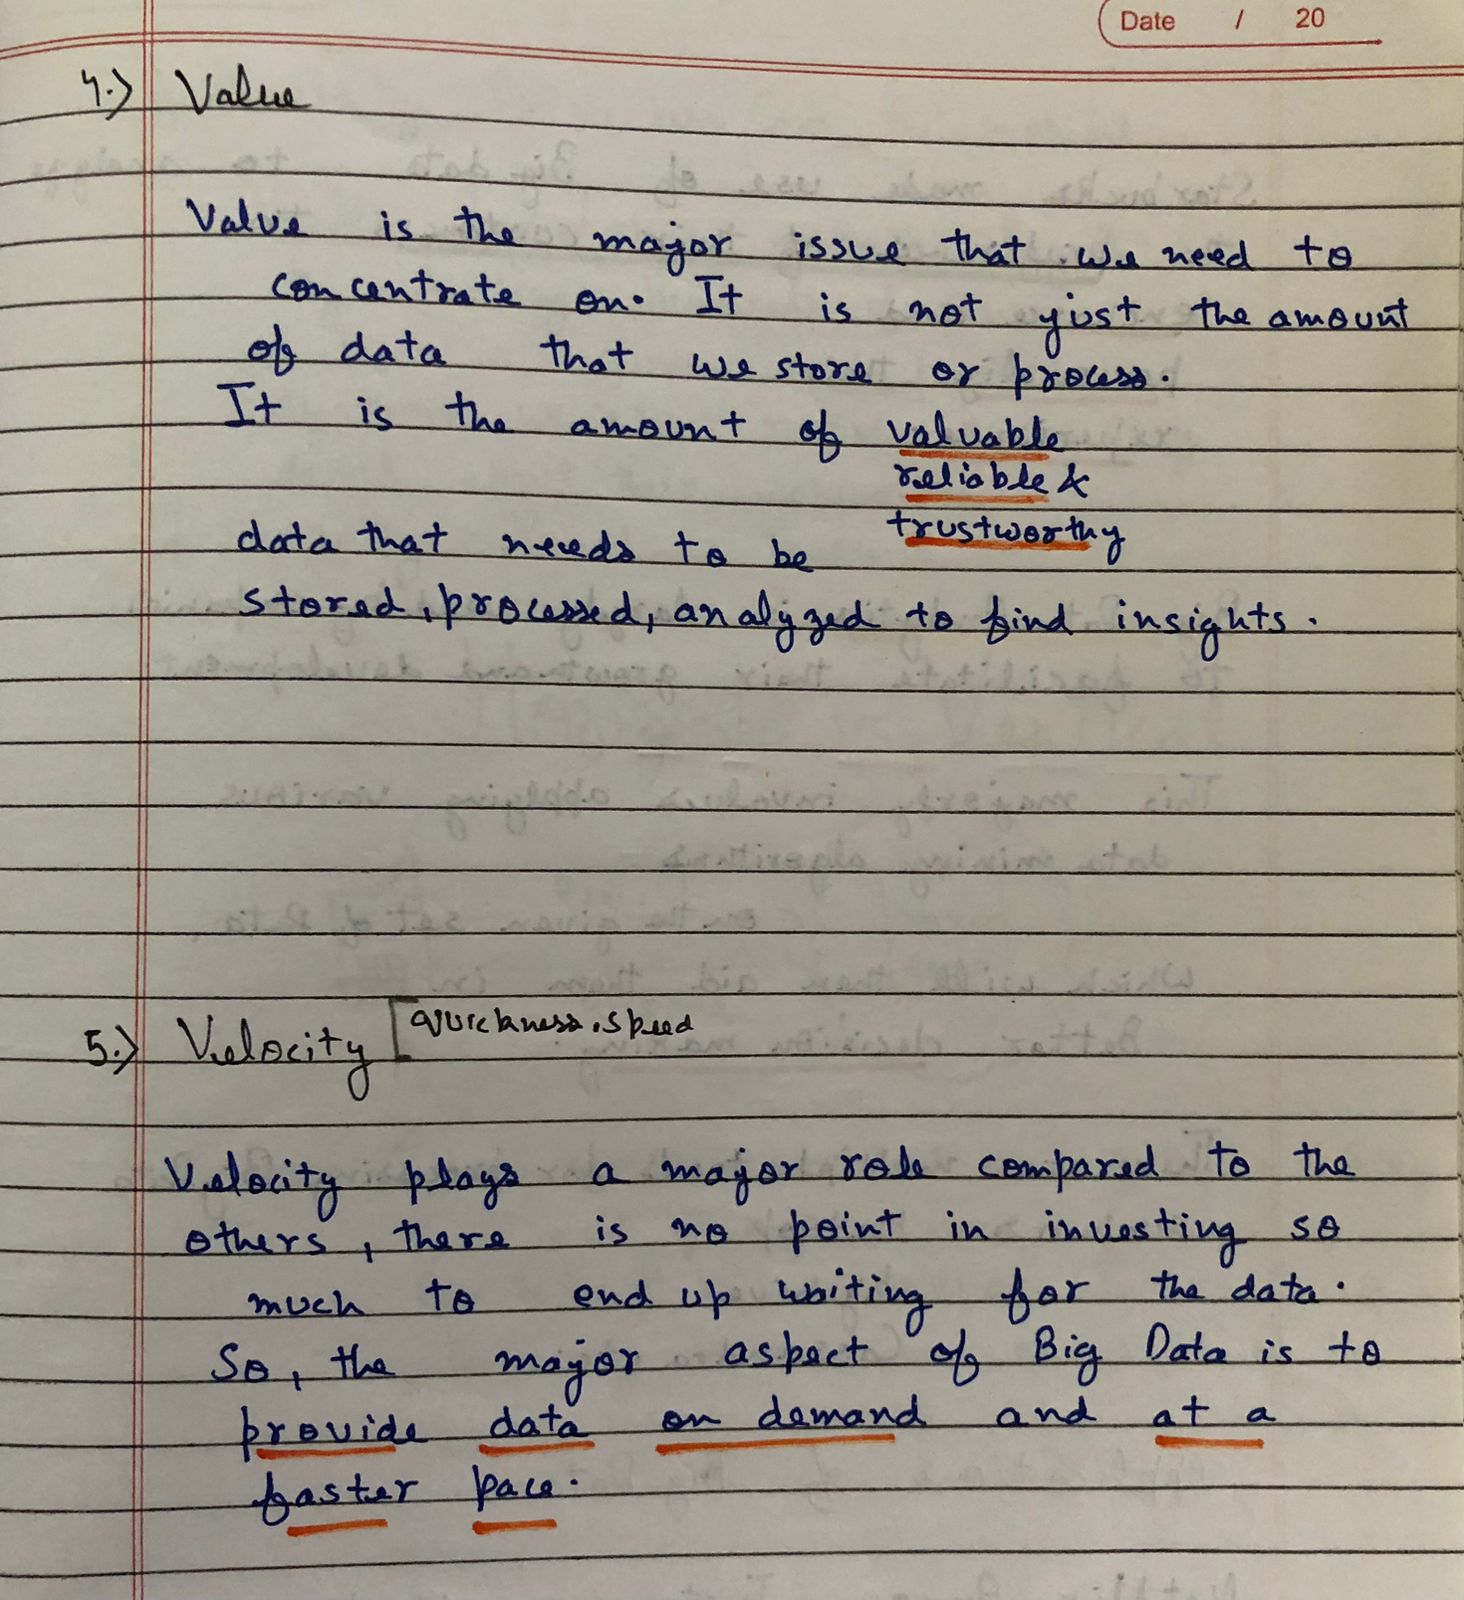 Date / 20
4.) Value
Value is the major issue that we need to
concentrate on. It is not just the amount
of data that we store or process.
It is the amount of valuable
reliable &
trustworthy
data that needs to be
stored, processed, analyzed to find insights.
5.) Velocity [quickness, speed
Velocity plays a major role compared to the
others, there is no point in investing so
much to end up waiting for the data.
So, the major aspect of Big Data is to
provide data on demand and at a
faster pace.